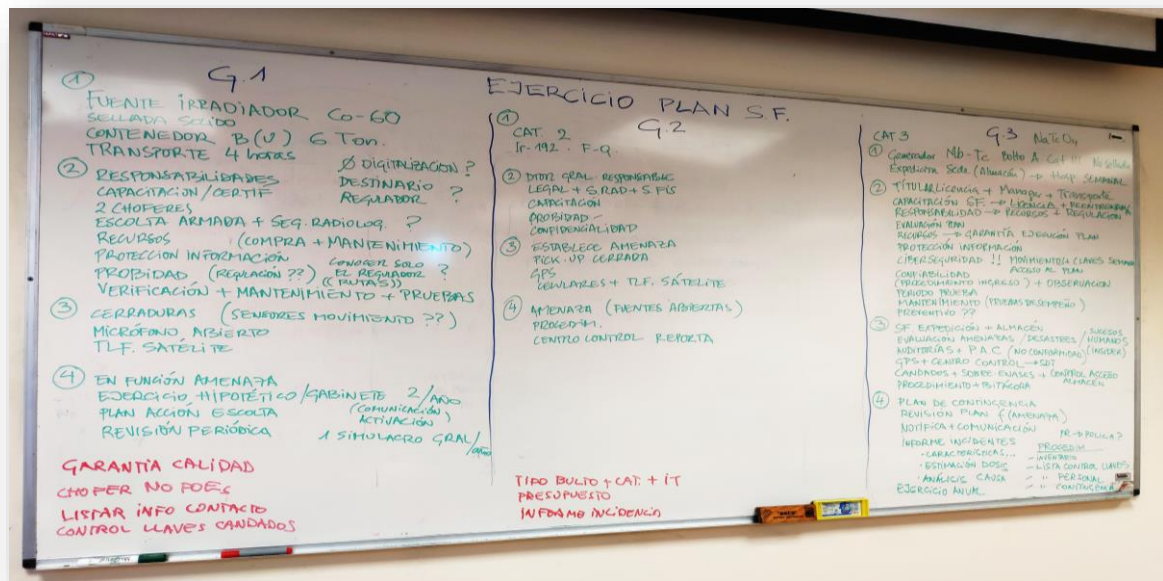 EJERCICIO PLAN S.F.
G.1
①
FUENTE IRRADIADOR CO-60
SELLADA SOLIDO
CONTENEDOR B(U) 6 Ton.
TRANSPORTE 4 horas
② RESPONSABILIDADES
Ø DIGITALIZACION ?
CAPACITACIÓN/CERTIF
DESTINARIO
REGULADOR ?
2 CHOFERES
ESCOLTA ARMADA + SEG. RADIOLOG. ?
RECURSOS (COMPRA + MANTENIMIENTO)
PROTECCION INFORMACIÓN
CONOCER SOLO
PROBIDAD (REGULACIÓN ??)
EL REGULADOR ?
((RUTAS))
VERIFICACIÓN + MANTENIMIENTO + PRUEBAS
③ CERRADURAS (SENSORES MOVIMIENTO ??)
MICRÓFONO ABIERTO
TLF. SATÉLITE
④ EN FUNCIÓN AMENAZA
EJERCICIO HIPOTÉTICO/GABINETE 2/AÑO
PLAN ACCIÓN ESCOLTA
(COMUNICACIÓN
ACTIVACIÓN)
REVISIÓN PERIÓDICA
1 SIMULACRO GRAL/AÑO
GARANTÍA CALIDAD
CHOFER NO POES
LISTAR INFO CONTACTO
CONTROL LLAVES CANDADOS
G.2
①
CAT. 2
Ir-192. F-Q.
② DTOR GRAL. RESPONSABLE
LEGAL + S.RAD + S FÍS
CAPACITACIÓN
PROBIDAD
CONFIDENCIALIDAD
③ ESTABLECE AMENAZA
PICK.UP CERRADA
GPS
CELULARES + TLF. SATÉLITE
④ AMENAZA (FUENTES ABIERTAS)
PROCEDIM.
CENTRO CONTROL REPORTA
TIPO BULTO + CAT. + IT
PRESUPUESTO
INFORME INCIDENCIA
G.3
CAT 3
① Generador Mb-Tc Bulto A Cat III No sellada
Expedición Sede (Almacén) → Hosp SEMANAL
② TITULAR Licencia + Manager + Transporte
CAPACITACIÓN S.F. → LICENCIA
RESPONSABILIDAD → RECURSOS + REGULACION
EVALUACIÓN
RECURSOS → GARANTÍA EJECUCIÓN PLAN
PROTECCIÓN INFORMACIÓN
CIBERSEGURIDAD !! MOVIMIENTO LLAVES
ACCESO AL PLAN
CONFIABILIDAD
(PROCEDIMIENTO INGRESO) + OBSERVACIÓN
PERIODO PRUEBA
MANTENIMIENTO (PRUEBAS DESEMPEÑO)
PREVENTIVO ??
③ SF EXPEDICIÓN + ALMACÉN
EVALUACIÓN AMENAZAS / DESASTRES / SUCESOS HUMANOS
AUDITORÍAS + P.A.C (NO CONFORMIDAD) (INSIDER)
GPS + CENTRO CONTROL
CANDADOS + SOBRE ENVASES + CONTROL ACCESO
ALMACÉN
PROCEDIMIENTO + BITÁCORA
④ PLAN DE CONTINGENCIA
REVISIÓN PLAN f (AMENAZA)
NOTIFICA + COMUNICACIÓN
PR → POLICIA ?
INFORME INCIDENTES
· CARACTERÍSTICAS...
· ESTIMACIÓN DOSIS
· ANÁLISIS CAUSA
EJERCICIO ANUAL
PROCEDIM
- INVENTARIO
- LISTA CONTROL LLAVES
- " " PERSONAL
- " " CONTINGENCIA